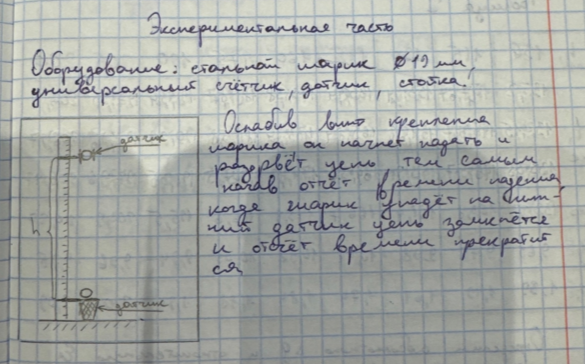 Экспериментальная часть
Оборудование: стальной шарик ⌀19 мм,
универсальный счётчик, датчик, стойка.
датчик
h
датчик
Ослабив винт крепления
шарика он начнет падать и
разорвёт цепь тем самым
начав отчёт времени падения,
когда шарик упадёт на ниж-
ний датчик цепь замкнётся
и отсчёт времени прекратит
ся